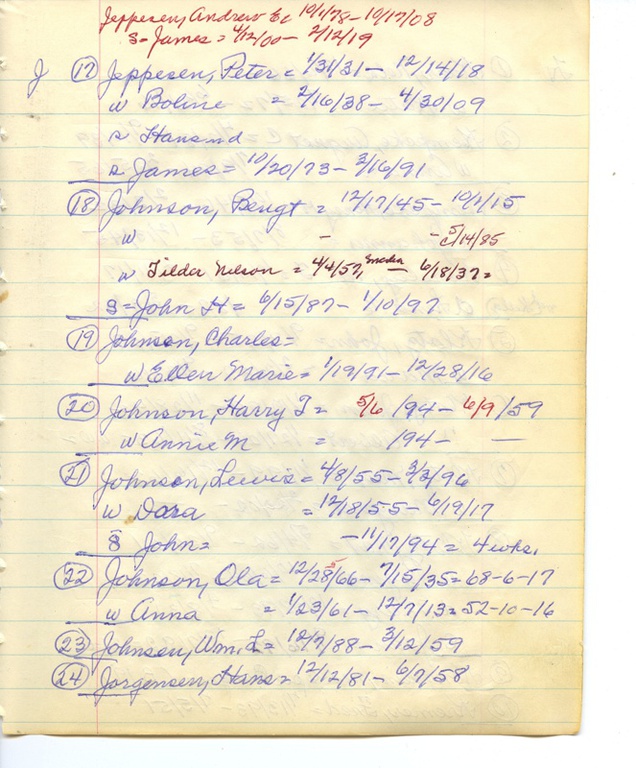 Jeppesen, Andrew E. 10/1/78 - 10/17/08
s- James = 4/12/00 - 2/12/19
J (17) Jeppesen, Peter = 1/31/31 - 12/14/18
w Boline = 2/16/38 - 4/30/09
s Hans
s James = 10/20/73 - 3/16/91
(18) Johnson, Bengt = 12/17/45 - 10/1/15
w - - 5/14/85
w Tilda Nelson = 4/4/57, - 6/18/37=
s = John H = 6/15/87 - 1/10/97
(19) Johnson, Charles =
w Ellen Marie = 1/19/91 - 12/28/16
(20) Johnson, Harry T = 5/6 /94 - 6/9/59
w Annie M = /94 - —
(21) Johnson, Lewis = 4/8/55 - 3/3/96
w Dora = 12/18/55 - 6/19/17
s John = - 11/17/94 = 4 wks.
(22) Johnson, Ola = 12/28/66 - 7/15/35 = 68-6-17
w Anna = 1/23/61 - 12/7/13 = 52-10-16
(23) Johnson, Wm. L = 12/7/88 - 3/12/59
(24) Jorgensen, Hans = 12/12/81 - 6/7/58